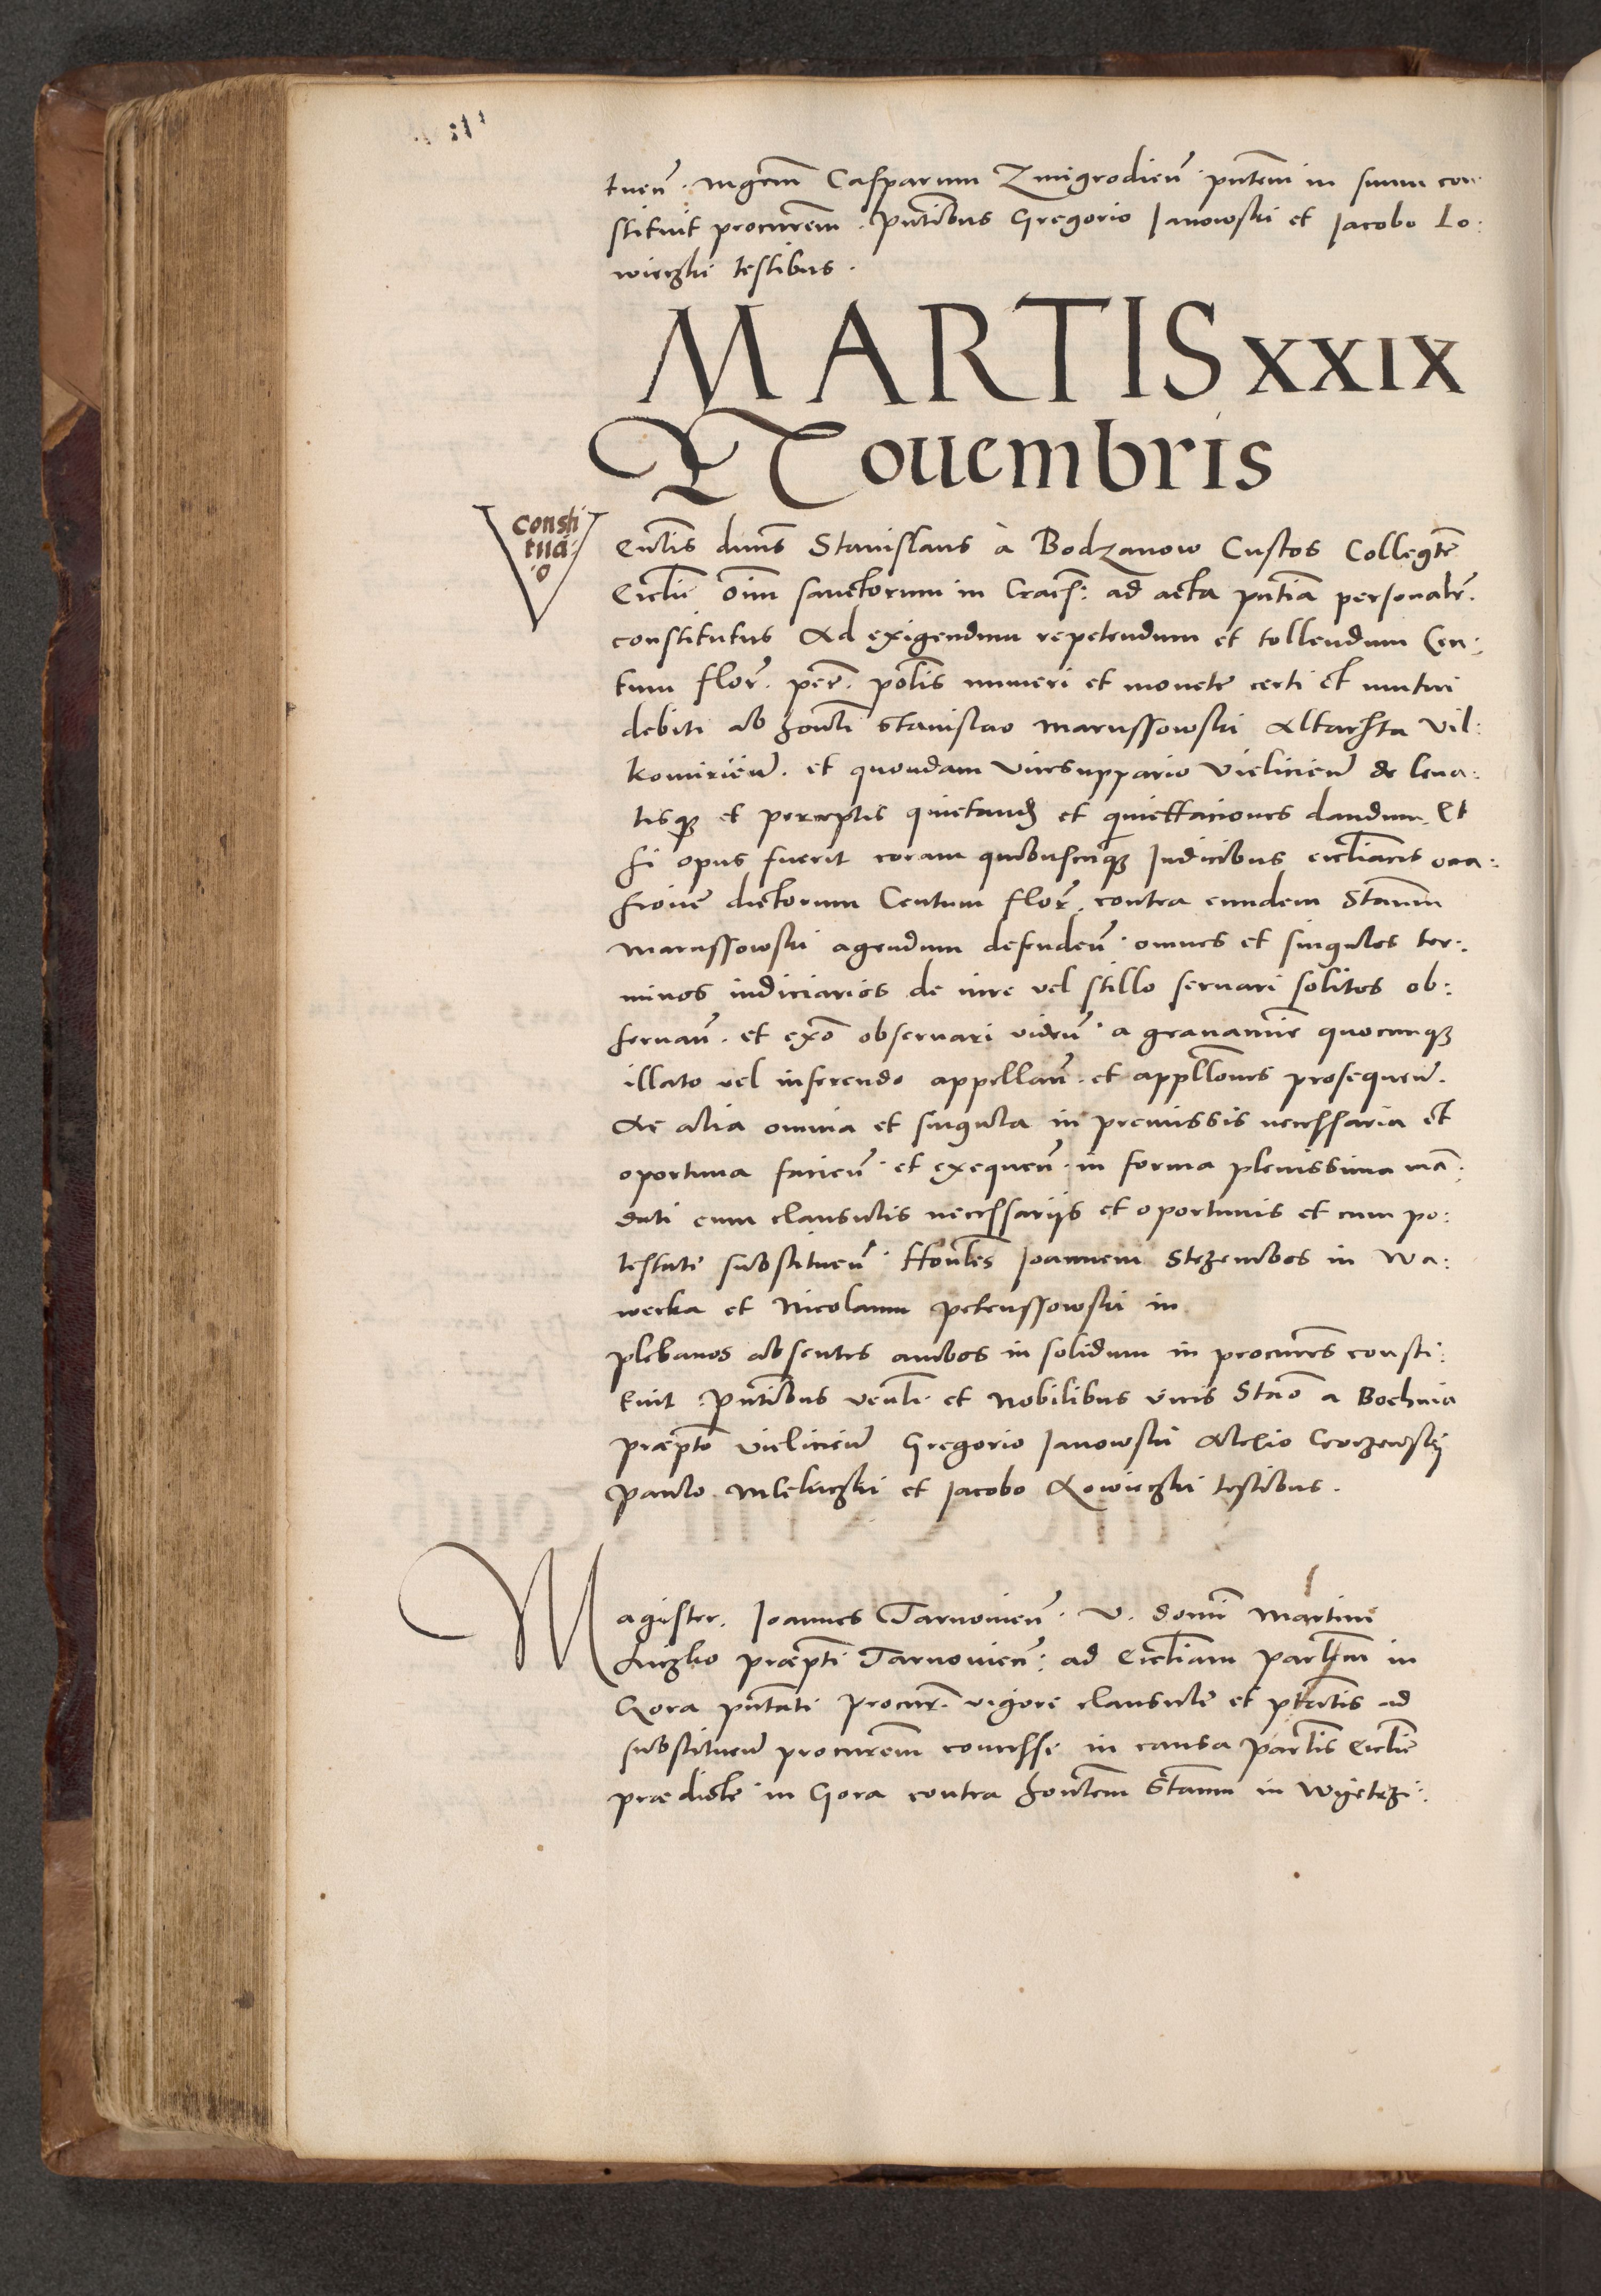 tuen̄ · mgrm̄ Casparum Zmigrodien̄ · pn̄tem in suum con:
stituit procur̄em · pn̄tibus Gregorio Janowski et Jacobo Lo:
wiczki testibus ·
MARTIS XXIX
Nouembris
Consti
tuci:
o
Ven̄lis dn̄us Stanislaus à Bodzanow Custos Collegt̄e
Eccl̄ie om̄ sanctorum in Crac̄s: ad acta pn̄tia personalr̄.
constitutus Ad exigendum repetendum et tollendum Cen:
tum flor̄. per̄. pol̄is numeri et monete certi et mutui
debiti ab hon̄li Stanislao Marussowski Altarista Vil:
komirien̄. et quondam vicesuppario Vielicien̄ de leua:
tisqз et perceptis quietand et quiettaciones dandum. Et
si opus fuerit coram quibuscūqз Judicibus eccl̄iacis occa:
sione dictorum Centum flor̄. contra eundem Stan̄m
Marussowski agendum defenden̄ · omnes et singulos ter:
minos iudiciarios de iure vel stillo seruari solitos ob:
seruan̄. et ex̄o obseruari viden̄ · a grauamīe quocunqз
illato vel inferendo appellan̄. et appll̄ones prosequen̄.
Ac alia omnia et singula in premissis necessaria et
oportuna facien̄ · et exequen̄ · in forma plenissima man̄:
dati cum clausulis necessarijs et oportunis et cum po:
testate substituen̄ · Hon̄les Joannem Stezembos in Wa:
werka et Nicolaum Petrussowski in
plebanos absentes ambos in solidum in procur̄es consti:
tuit · Pn̄tibus ven̄li · et Nobilibus viris Stan̄o a Bochnia
præpt̄o Vielicien̄ Gregorio Janowski Alexio
Paulo et Jacobo Lowiczki testibus ·
Magister. Joannes Tarnouien̄ · V. domi Martini
Liczko præpt̄i Tarnouien̄: ad Eccl̄iam parl̄em in
Gora pn̄tati Procur̄. vigore clausule et pt̄atis ad
substituen̄ procur̄em concesse in causa parl̄is Eccl̄ie
prædicte in Gora contra hon̄lem Stan̄m in